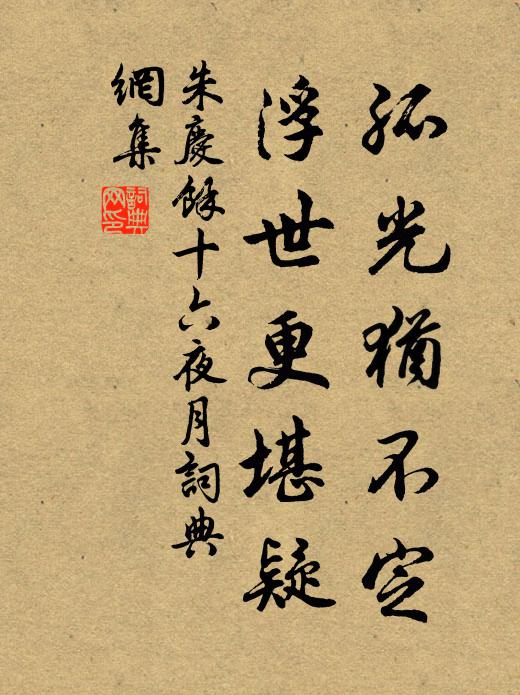 孤光猶不定
浮世更堪疑
朱慶餘十六夜月詞典
網集
詞典
网印